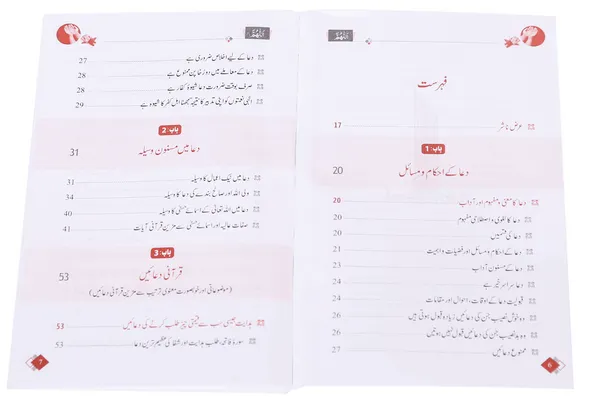 فہرست
عرض ناشر 17
باب: 1
دعا کے احکام و مسائل 20
دعا کا معنی و مفہوم اور آداب 20
دعا کا لغوی و اصطلاحی مفہوم 20
دعا کی قسمیں 20
دعا کے احکام و مسائل اور فضیلت و اہمیت 21
دعا کے مسنون آداب 23
دعا سراسر خیر ہے 24
قبولیت دعا کے اوقات، احوال اور مقامات 24
وہ خوش نصیب جن کی دعائیں زیادہ قبول ہوتی ہیں 26
وہ بدنصیب جن کی دعائیں قبول نہیں ہوتیں 26
ممنوع دعائیں 27
6
دعا کے لیے اخلاص ضروری ہے 27
دعا کے معاملے میں دوہرا پن ممنوع ہے 28
صرف بوقت ضرورت دعا شیوۂ کفار ہے 28
الٰہی نعمتوں کو اپنی تدبیر کا نتیجہ سمجھنا اہل کفر کا شیوہ ہے 29
باب: 2
دعا میں مسنون وسیلہ 31
دعا میں نیک اعمال کا وسیلہ 31
ولی اللہ اور صالح بندے کی دعا کا وسیلہ 34
دعا میں اللہ تعالیٰ کے اسمائے حسنیٰ کا وسیلہ 40
صفات عالیہ اور اسمائے حسنیٰ سے مزین قرآنی آیات 41
باب: 3
قرآنی دعائیں 53
(موضوعاتی اور خوبصورت معنوی ترتیب سے مزین قرآنی دعائیں)
ہدایت جیسی سب سے قیمتی چیز طلب کرنے کی دعائیں 53
سورۂ فاتحہ: طلب ہدایت اور شفا کی عظیم ترین دعا 53
7